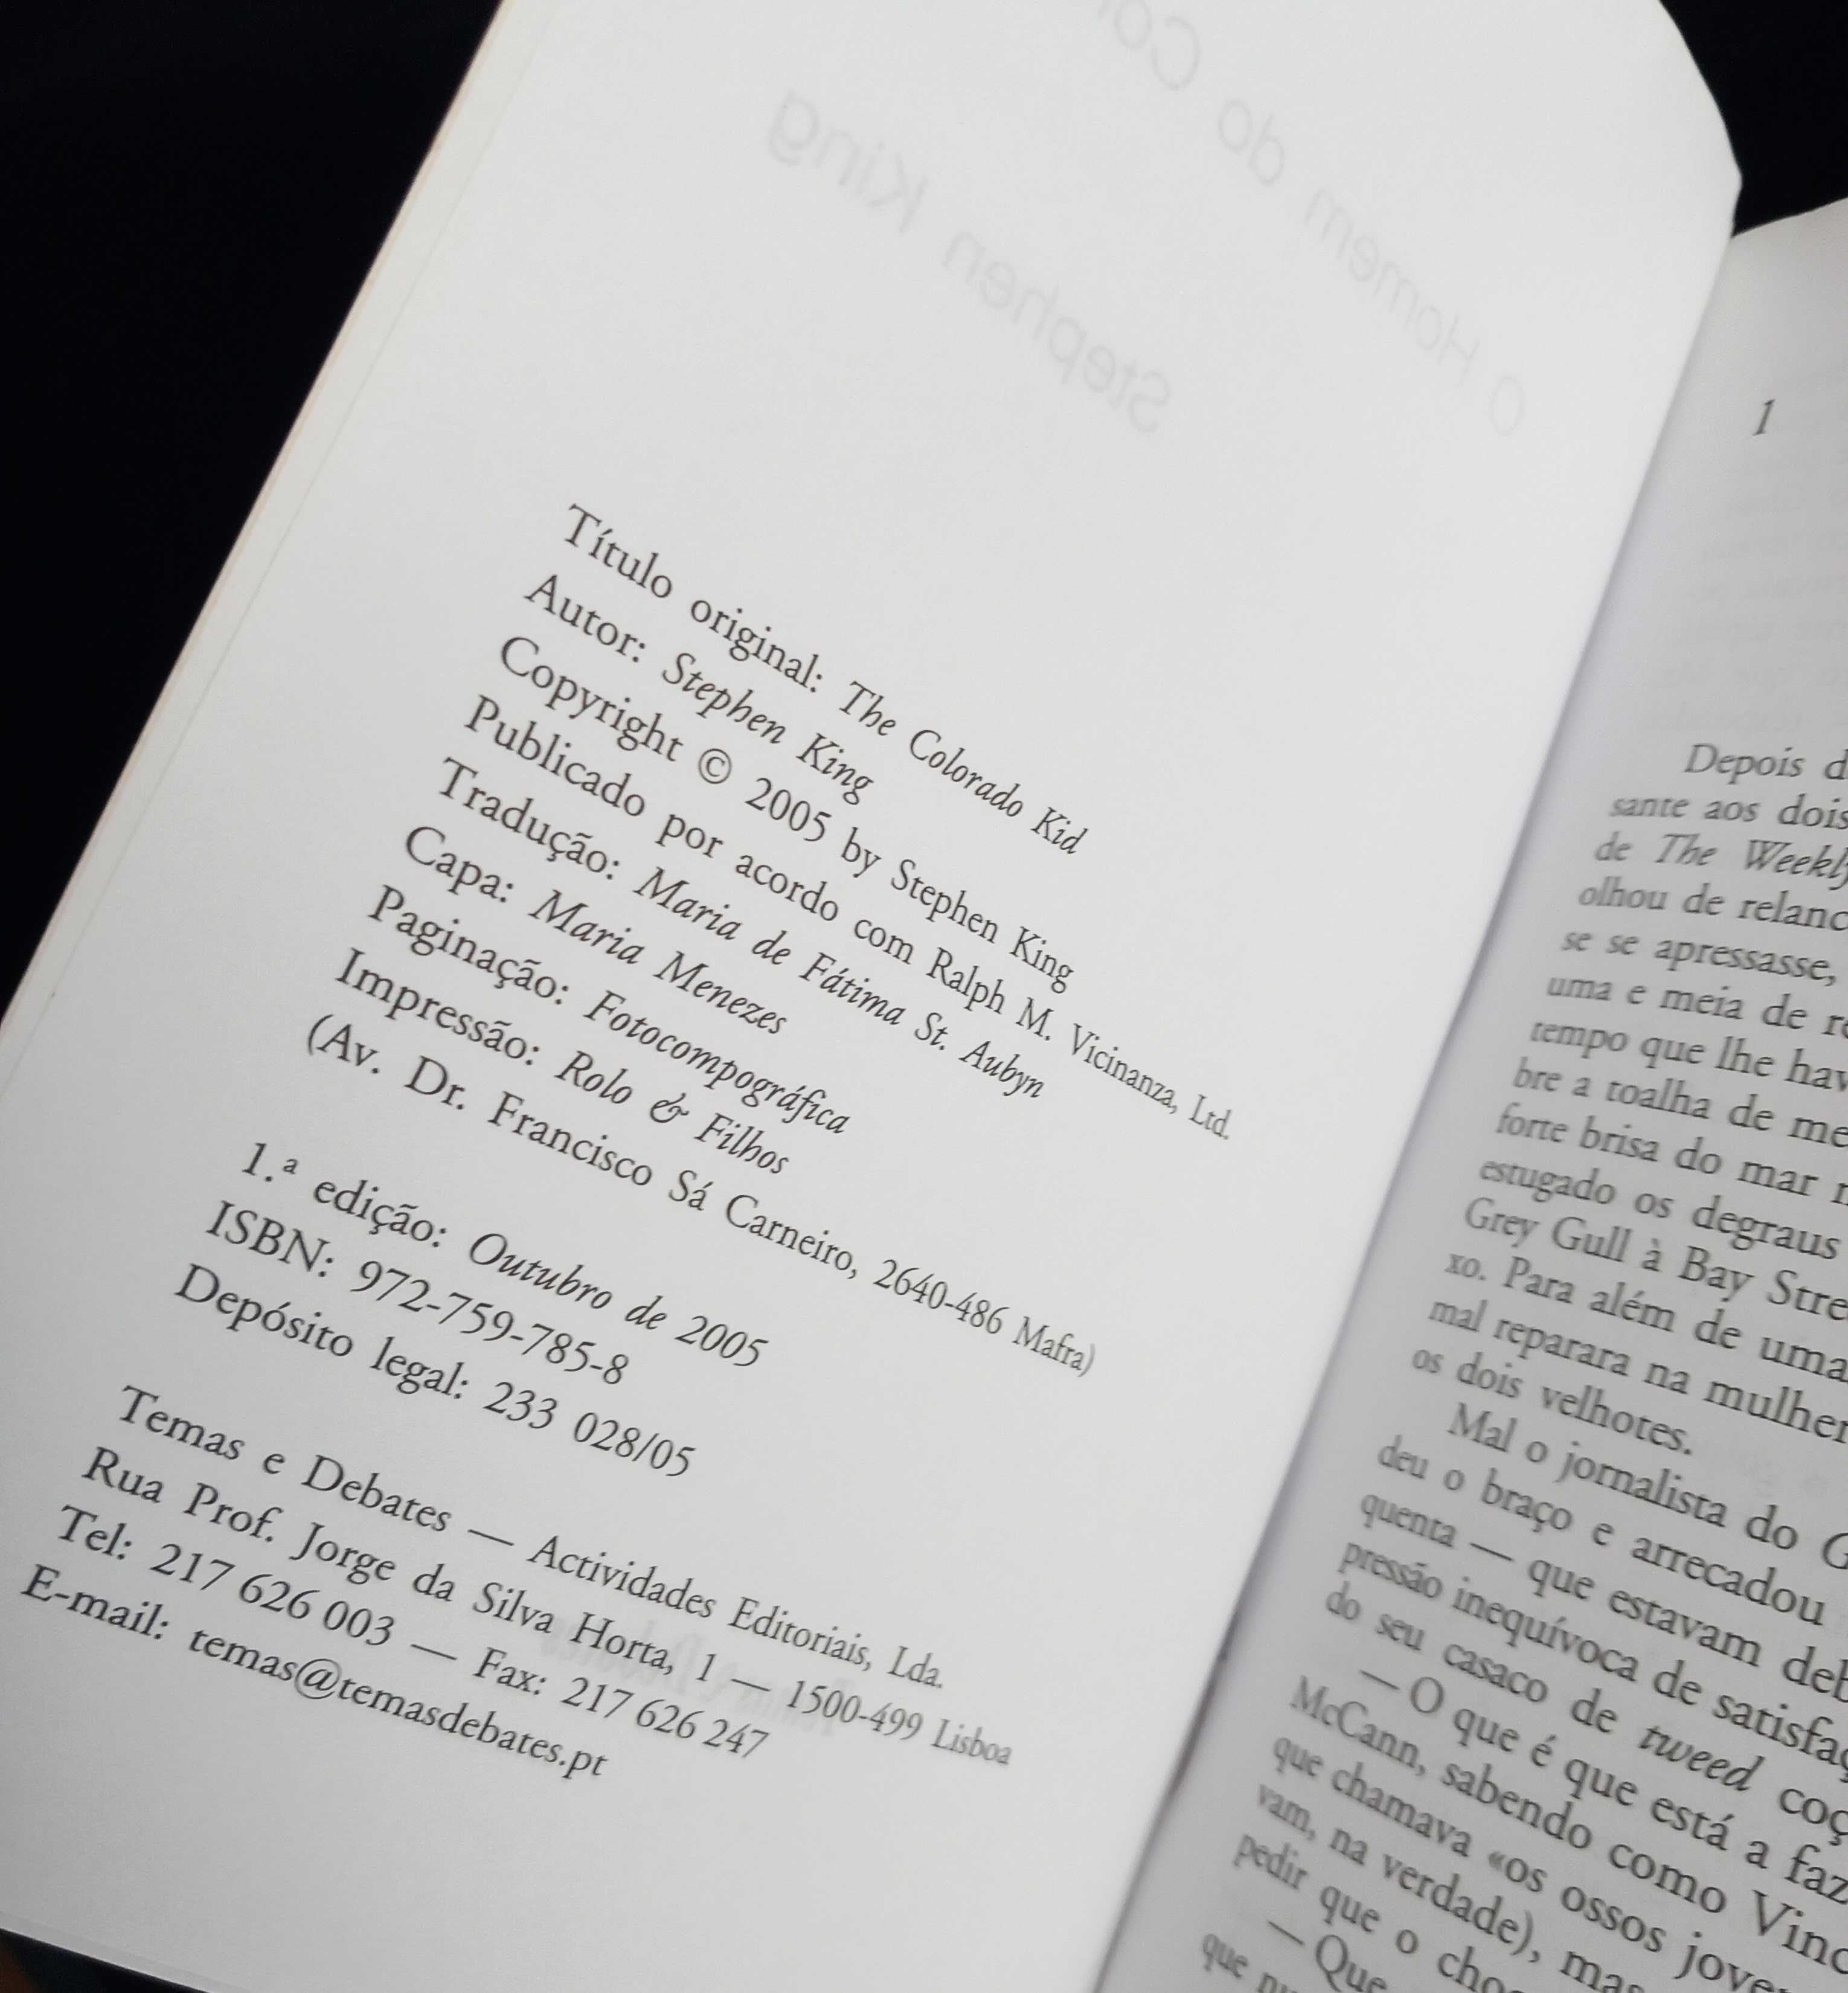 O Homem do Co
Stephen King
Título original: The Colorado Kid
Autor: Stephen King
Copyright © 2005 by Stephen King
Publicado por acordo com Ralph M. Vicinanza, Ltd.
Tradução: Maria de Fátima St. Aubyn
Capa: Maria Menezes
Paginação: Fotocompográfica
Impressão: Rolo & Filhos
(Av. Dr. Francisco Sá Carneiro, 2640-486 Mafra)
1.ª edição: Outubro de 2005
ISBN: 972-759-785-8
Depósito legal: 233 028/05
Temas e Debates — Actividades Editoriais, Lda.
Rua Prof. Jorge da Silva Horta, 1 — 1500-499 Lisboa
Tel: 217 626 003 — Fax: 217 626 247
E-mail: temas@temasdebates.pt
1
Depois d
sante aos dois
de The Weekly
olhou de relanc
se se apressasse,
uma e meia de re
tempo que lhe hav
bre a toalha de me
forte brisa do mar
estugado os degraus
Grey Gull à Bay Stre
xo. Para além de uma
mal reparara na mulher
os dois velhotes.
Mal o jornalista do G
deu o braço e arrecadou
quenta — que estavam deb
pressão inequívoca de satisfaç
do seu casaco de tweed coç
— O que é que está a faz
McCann, sabendo como Vinc
que chamava «os ossos jove
vam, na verdade), mas
pedir que o cho
— Que
que nu